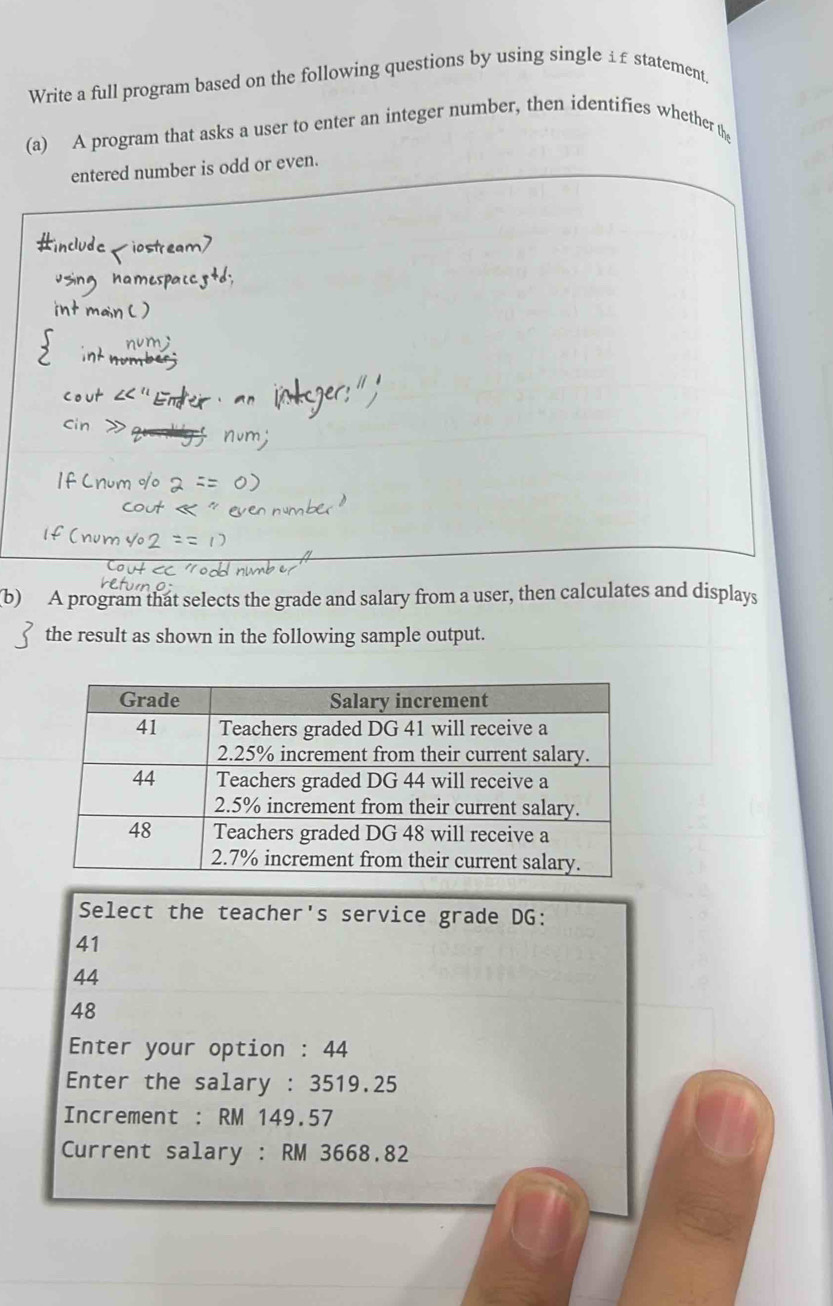 Write a full program based on the following questions by using single if statement.
(a) A program that asks a user to enter an integer number, then identifies whether the
entered number is odd or even.
#include <iostream>
using namespace std;
int main()
{ int number; num;
cout << "Enter an integer:";
cin >> num;
If (num % 2 == 0)
cout << "even number"
if (num % 2 == 1)
cout << "odd number"
return 0;
(b) A program that selects the grade and salary from a user, then calculates and displays
} the result as shown in the following sample output.
Grade Salary increment
41 Teachers graded DG 41 will receive a
2.25% increment from their current salary.
44 Teachers graded DG 44 will receive a
2.5% increment from their current salary.
48 Teachers graded DG 48 will receive a
2.7% increment from their current salary.
Select the teacher's service grade DG:
41
44
48
Enter your option : 44
Enter the salary : 3519.25
Increment : RM 149.57
Current salary : RM 3668.82